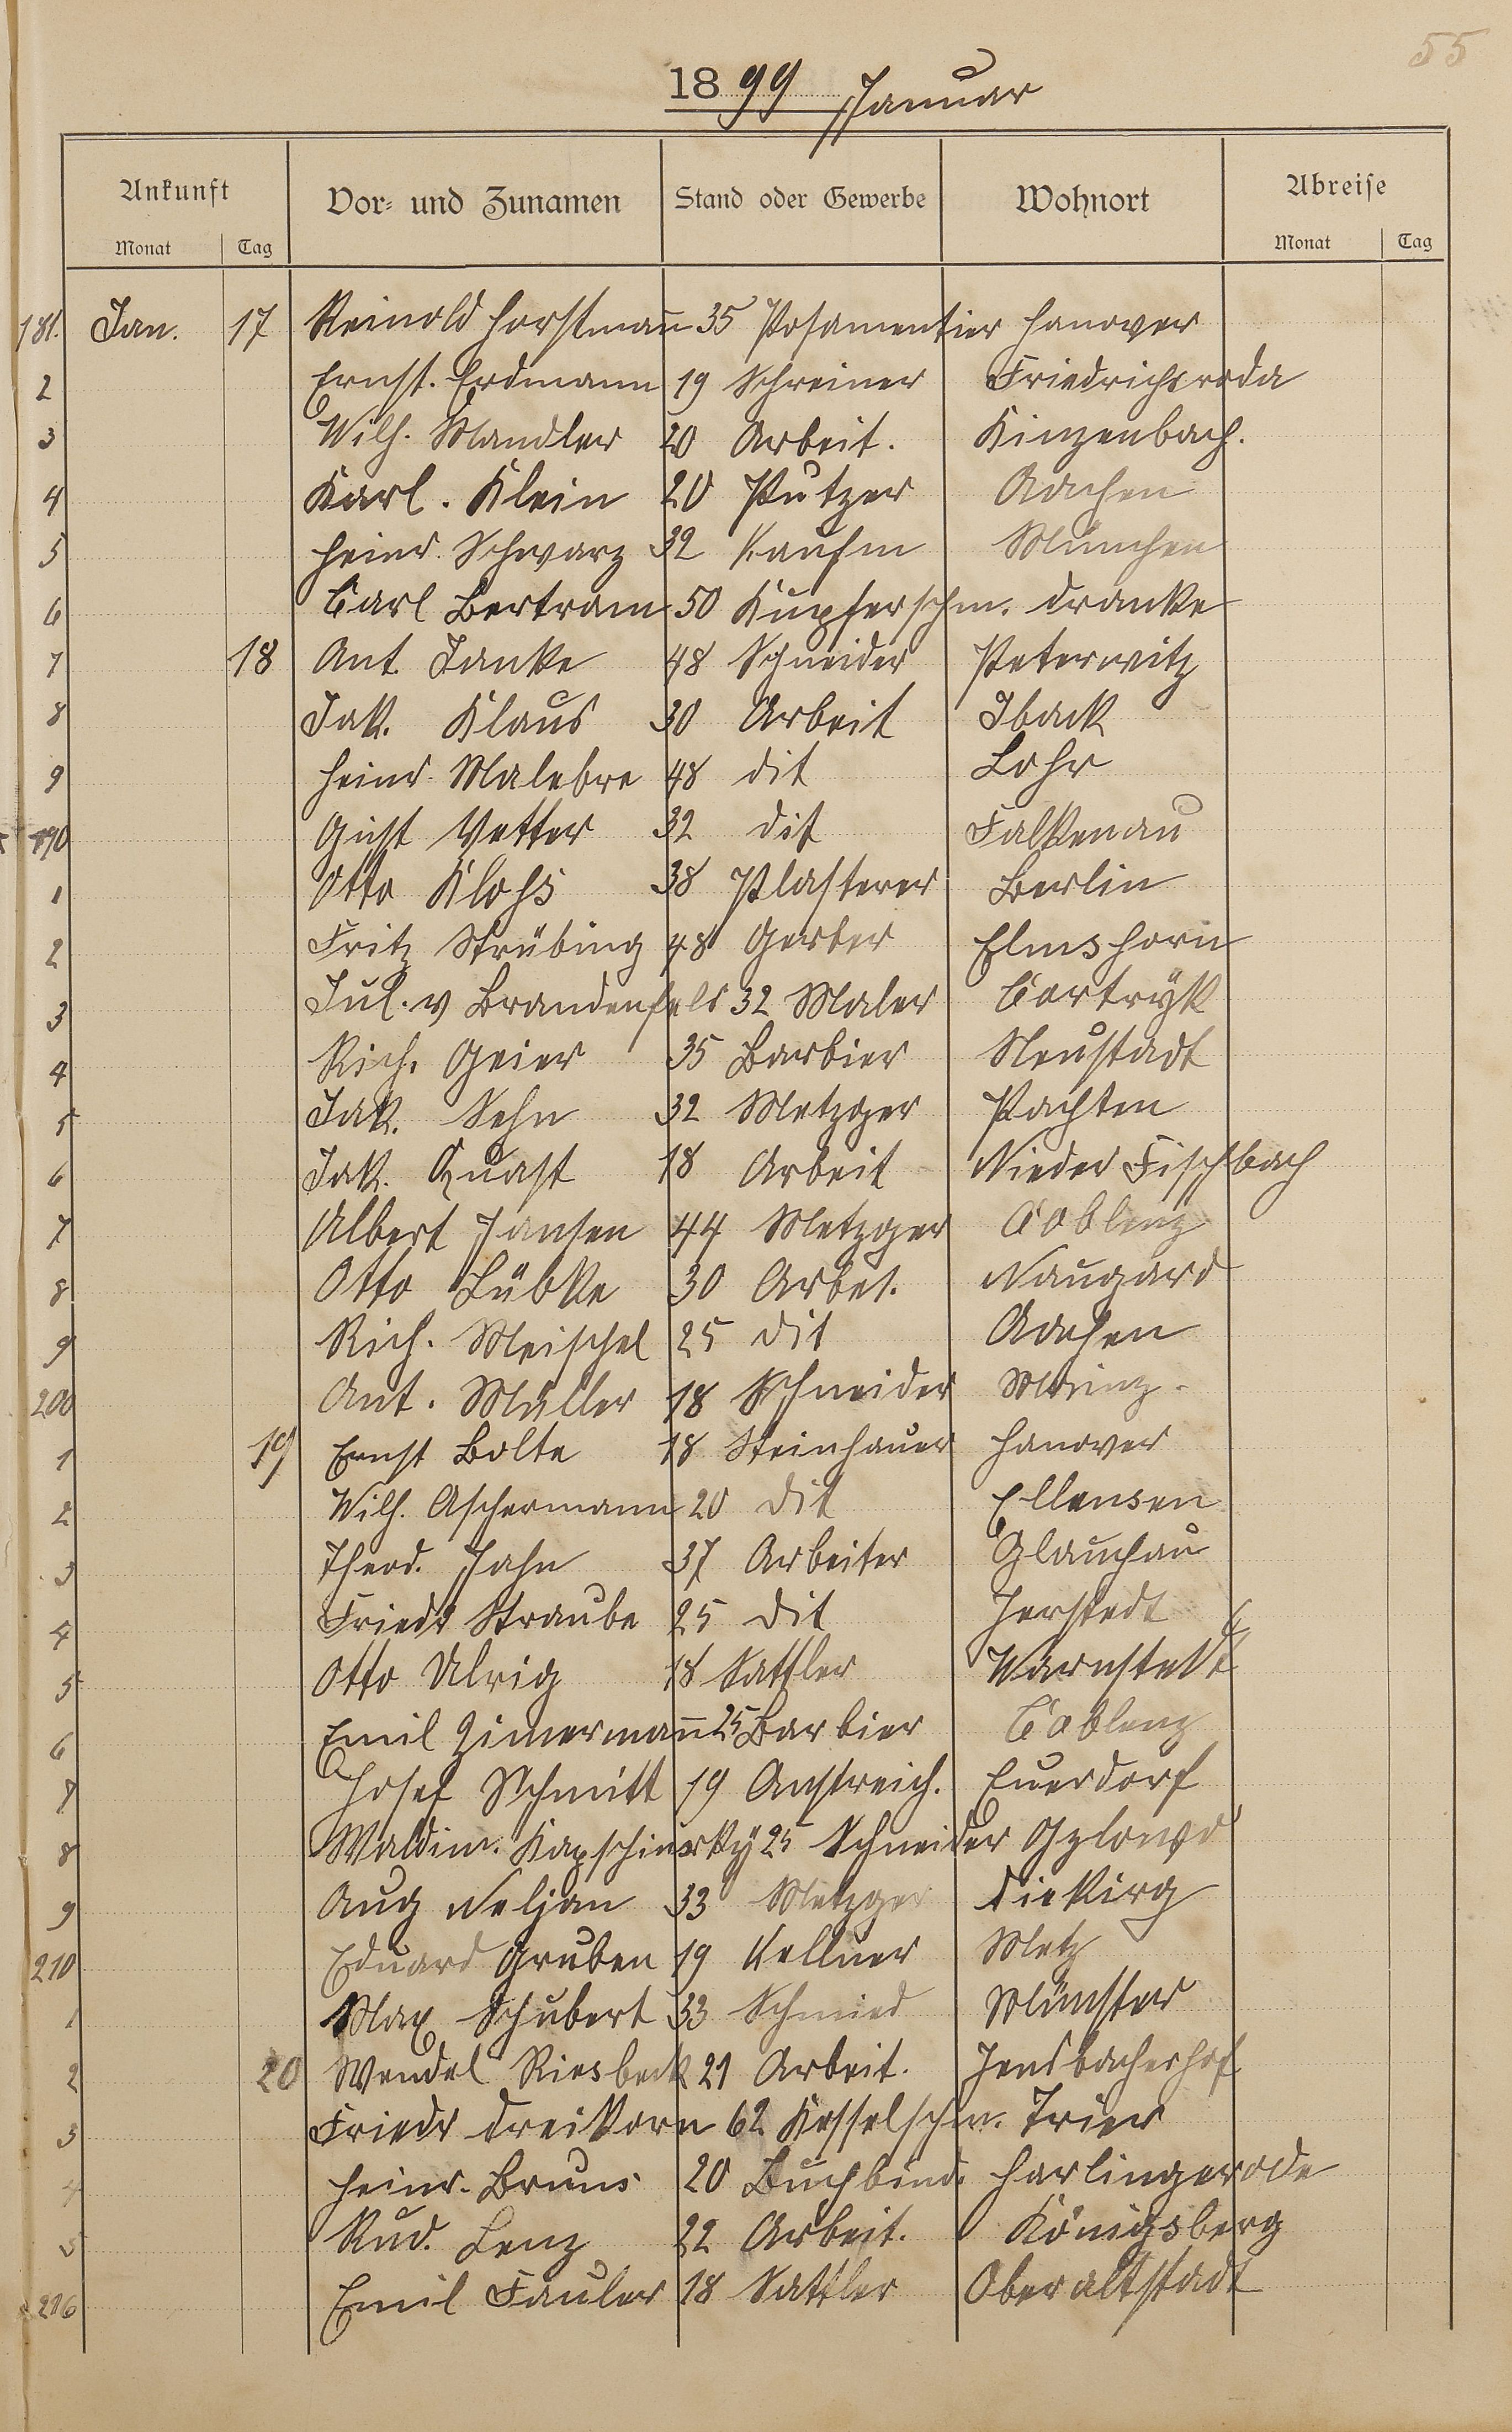 55
1899 Januar
Ankunft Vor- und Zunamen Stand oder Gewerbe Wohnort Abreise
Monat Tag Monat Tag
181. Jan. 17 Reinold Horstman̄ 35 Posamentier Hanover
2 Ernst. Erdmann 19 Schreiner Friedrichsroda
3 Wilh. Mandler 20 Arbeit. Kinzenbach.
4 Karl. Klein 20 Putzer Aachen
5 Heinr. Schwarz 32 Kaufm München
6 Carl Bertram 50 Kupferschm. Dranke
7 18 Ant. Janke 48 Schneider Peterwitz
8 Jak. Klaus 30 Arbeit Iback
9 Heinr. Malebre 48 dit Lohr
190 Gust Vetter 32 dit Falkenau
1 Otto Klohs 38 Plasterer Berlin
2 Fritz Strübing 48 Gerber Elmshorn
3 Jul. v Brandenfels 32 Maler Cortryk
4 Rich. Geier 35 Barbier Neustadt
5 Jak. Sehn 32 Metzger Pachten
6 Jak. Quast 18 Arbeit Nieder Fischbach
7 Albert Jansen 44 Metzger Coblenz
8 Otto Lübke 30 Arbet. Naugard
9 Rich. Meischel 25 dit Aachen
200 Ant. Müller 18 Schneider Mainz.
1 19 Ernst Bolte 18 Steinhauer Hanover
2 Wilh. Aschermann 20 dit Ellensen
3 Theod. Jahn 37 Arbeiter Glauchau
4 Friedr Straube 25 dit Jerstedt
5 Otto Ulrig 18 Sattler Warnstedt
6 Emil Zimerman̄ 25 Barbier Coblenz
7 Josef Schmitt 19 Anstreich. Euerdorf
8 Waldim. Kapschinsky 25 Schneider
9 Aug Neljan 33 Metzger Diekirg
210 Eduard Gruben 19 Kellner Metz
1 Max Schubert 33 Schmied Münster
2 20 Wendel Riesbeck 21 Arbeit. Jensbacherhof
3 Friedr Dreikorn 62 Kesselschm. Trier
4 Heinr. Bruns 20 Buchbind. Harlingerode
5 Rud. Lenz 22 Arbeit. Königsberg
216 Emil Fauler 18 Sattler Oberaltstadt